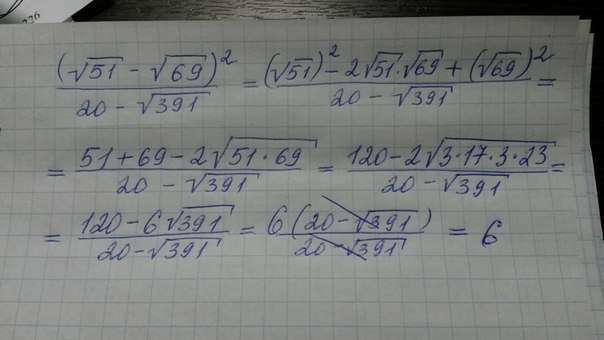 (√51 - √69)² / (20 - √391) = ((√51)² - 2√51·√69 + (√69)²) / (20 - √391) =
= (51 + 69 - 2√(51·69)) / (20 - √391) = (120 - 2√(3·17·3·23)) / (20 - √391) =
= (120 - 6√391) / (20 - √391) = 6(20 - √391) / (20 - √391) = 6